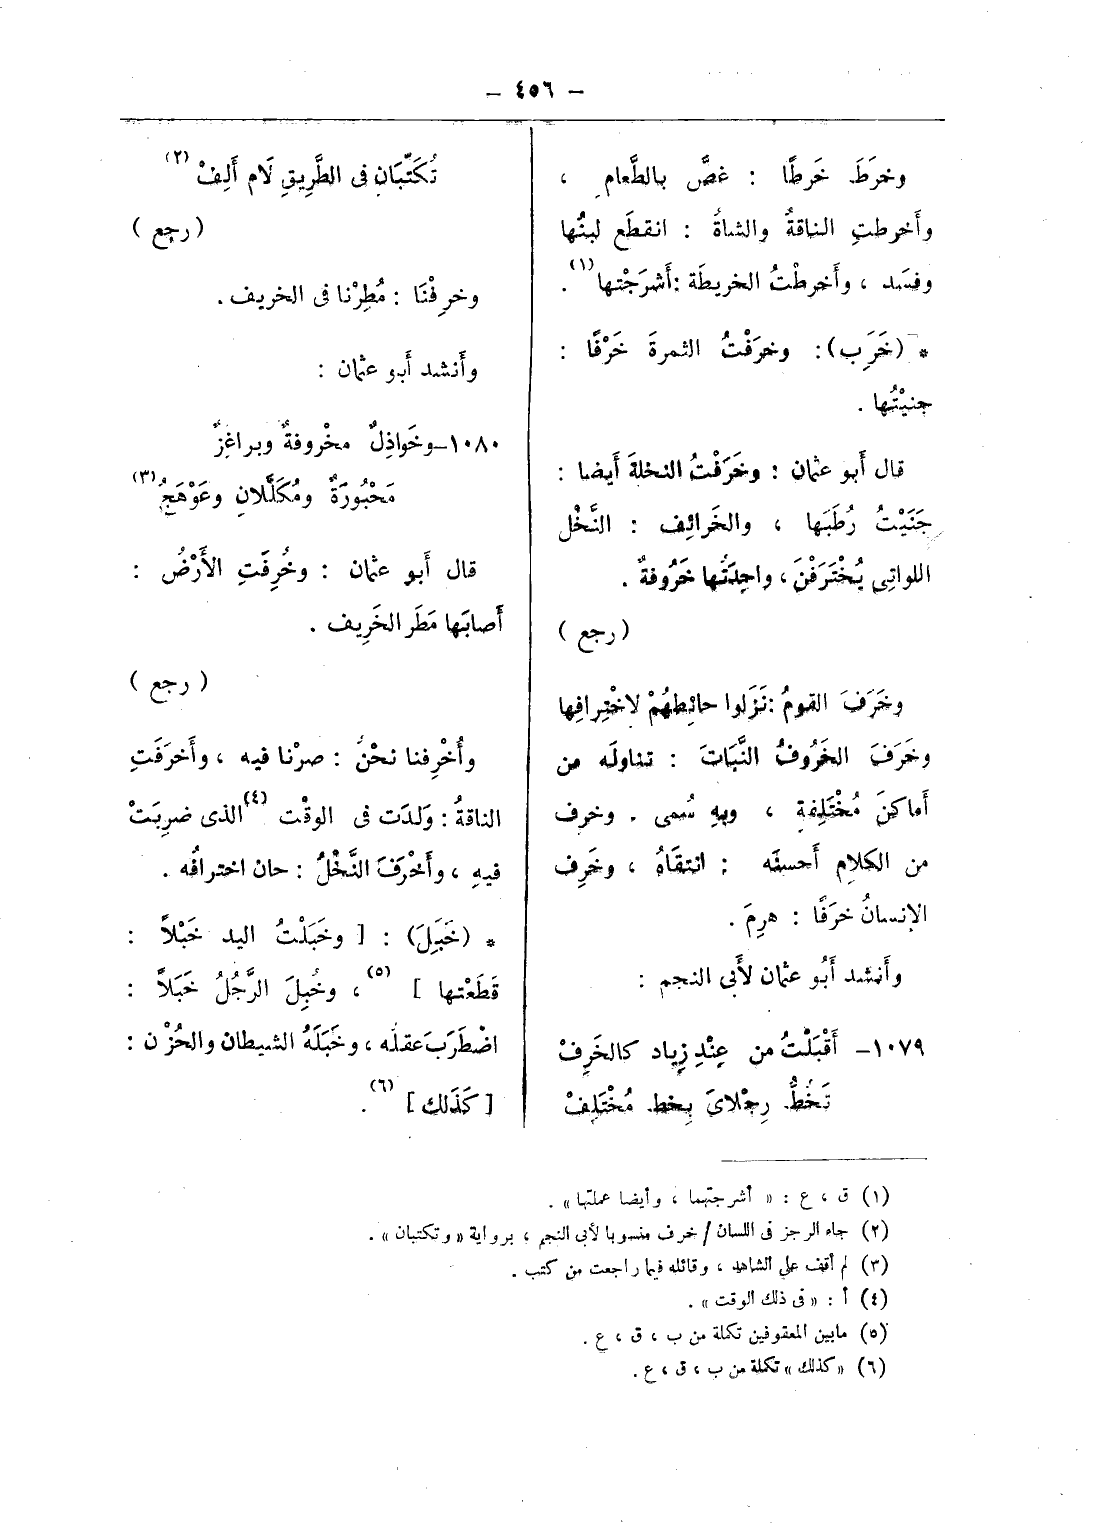 – ٤٥٦ –
وخرَطَ خَرطًا : غصَّ بالطَّعام ،
وأخرطتِ الناقةُ والشاةُ : انقطَع لبنُها
وفسَد ، وأخرطْتُ الخريطَة :أشرَجْتها(١) .
* (خَرَِب): وخرَفْتُ الثمرةَ خَرْفًا :
جنيْتُها .
قال أَبو عثمان : وخَرَفْتُ النخلةَ أَيضا :
جَنَيْتُ رُطَبَها ، والخَرائِف : النَّخْل
اللواتِى يُخْتَرَفْنَ ، واحِدَتُها خَرُوفةٌ .
( رجع )
وخَرَفَ القومُ :نَزَلوا حائِطَهُمْ لاخْتِرافِها
وخَرَفَ الخَرُوفُ النَّبَاتَ : تناولَه من
أَماكنَ مُخْتَلِفةٍ ، وبهِ سُمى . وخرف
من الكلامِ أَحسنَه : انتقَاهُ ، وخَرِف
الإنسانُ خرَفًا : هرِمَ .
وأَنشد أَبُو عثمان لأَبى النجم :
١٠٧٩– أَقْبَلْتُ من عِنْدِ زِياد كالخَرِفْ
تَخُطُّ رِجْلاىَ بِخط مُخْتَلِفْ
تُكَتِّبَانِ فى الطَّرِيقِ لَام أَلِفْ(٢)
( رجع )
وخرِفْنَا : مُطِرْنا فى الخريف .
وأَنشد أَبو عثمان :
١٠٨٠–وخَواذِلٌ مخْروفةٌ وبراغِزٌ
مَحْبُورَةٌ ومُكَلَّلانِ وعَوْهَجُ(٣)
قال أَبو عثمان : وخُرِفَتِ الأَرْضُ :
أَصابَها مَطَر الخَرِيف .
( رجع )
وأُخْرِفنا نحْنُ : صرْنا فيه ، وأَخرَفَتِ
الناقةُ : وَلدَت فى الوقْت (٤)الذى ضرِبَتْ
فيهِ ، وأَخْرَفَ النَّخْلُ : حان اخترافُه .
* (خَبَِلَ) : [ وخَبَلْتُ اليد خَبْلاً :
قَطَعْتها ] (٥) ، وخُبِلَ الرَّجُلُ خَبَلاً :
اضْطَرَبَ عقلُه ، وخَبَلَهُ الشيطان والحُزْن :
[ كَذَلك ] (٦) .
(١) ق ، ع : « أشرجتهما ، وأيضا عملتها » .
(٢) جاء الرجز فى اللسان / خرف منسوبا لأبى النجم ، برواية « وتكتبان » .
(٣) لم أقف على الشاهد ، وقائله فيما راجعت من كتب .
(٤) أ : « فى ذلك الوقت » .
(٥) مابين المعقوفين تكملة من ب ، ق ، ع .
(٦) « كذلك » تكملة من ب ، ق ، ع .